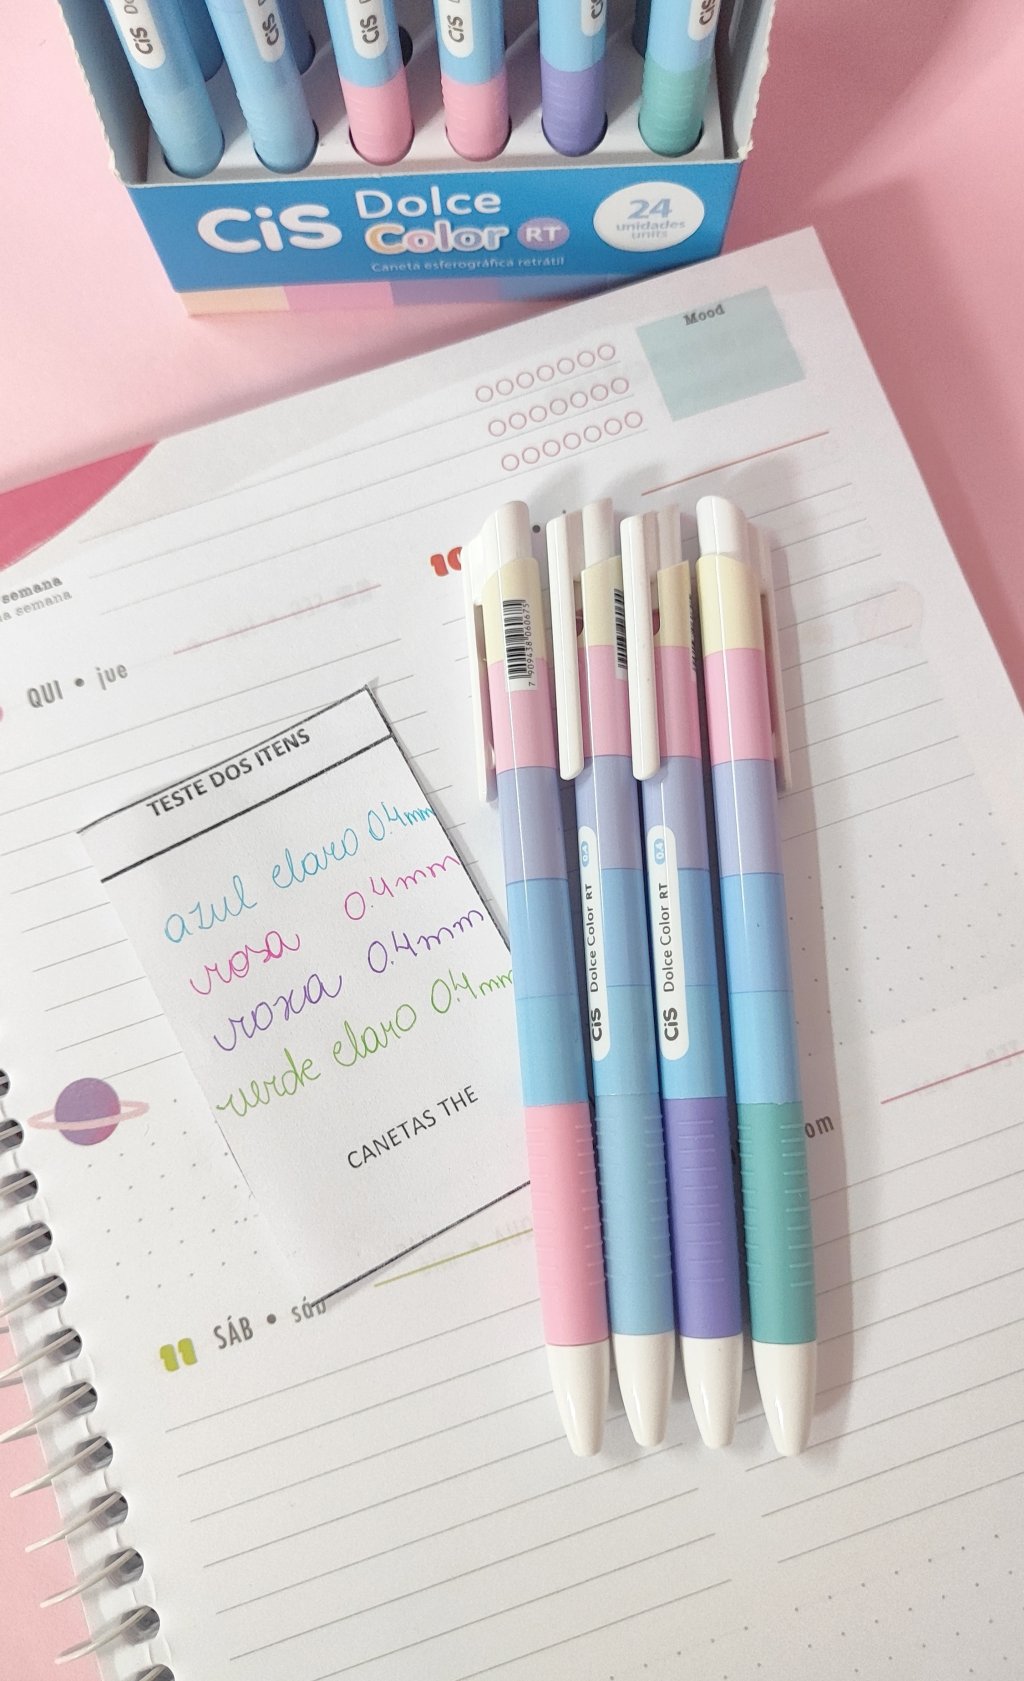 CiS
CiS
CiS
CiS
CiS
CiS
CiS Dolce Color RT
24 unidades units
Caneta esferográfica retrátil
Mood
semana
a semana
10
QUI • jue
7 909438 060675
TESTE DOS ITENS
azul claro 0.4mm
rosa 0.4mm
roxa 0.4mm
verde claro 0.4mm
CANETAS THE
CiS Dolce Color RT 0.4
CiS Dolce Color RT 0.4
om
11 SÁB • sáb